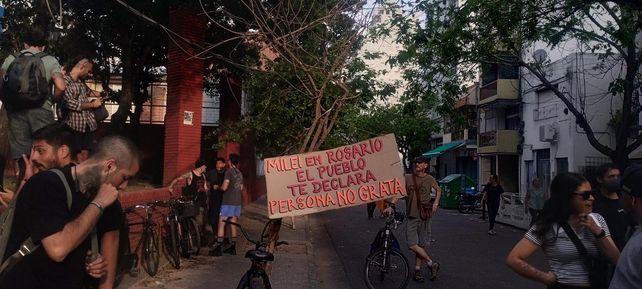 MILEI EN ROSARIO
EL PUEBLO
TE DECLARA
PERSONA NO GRATA